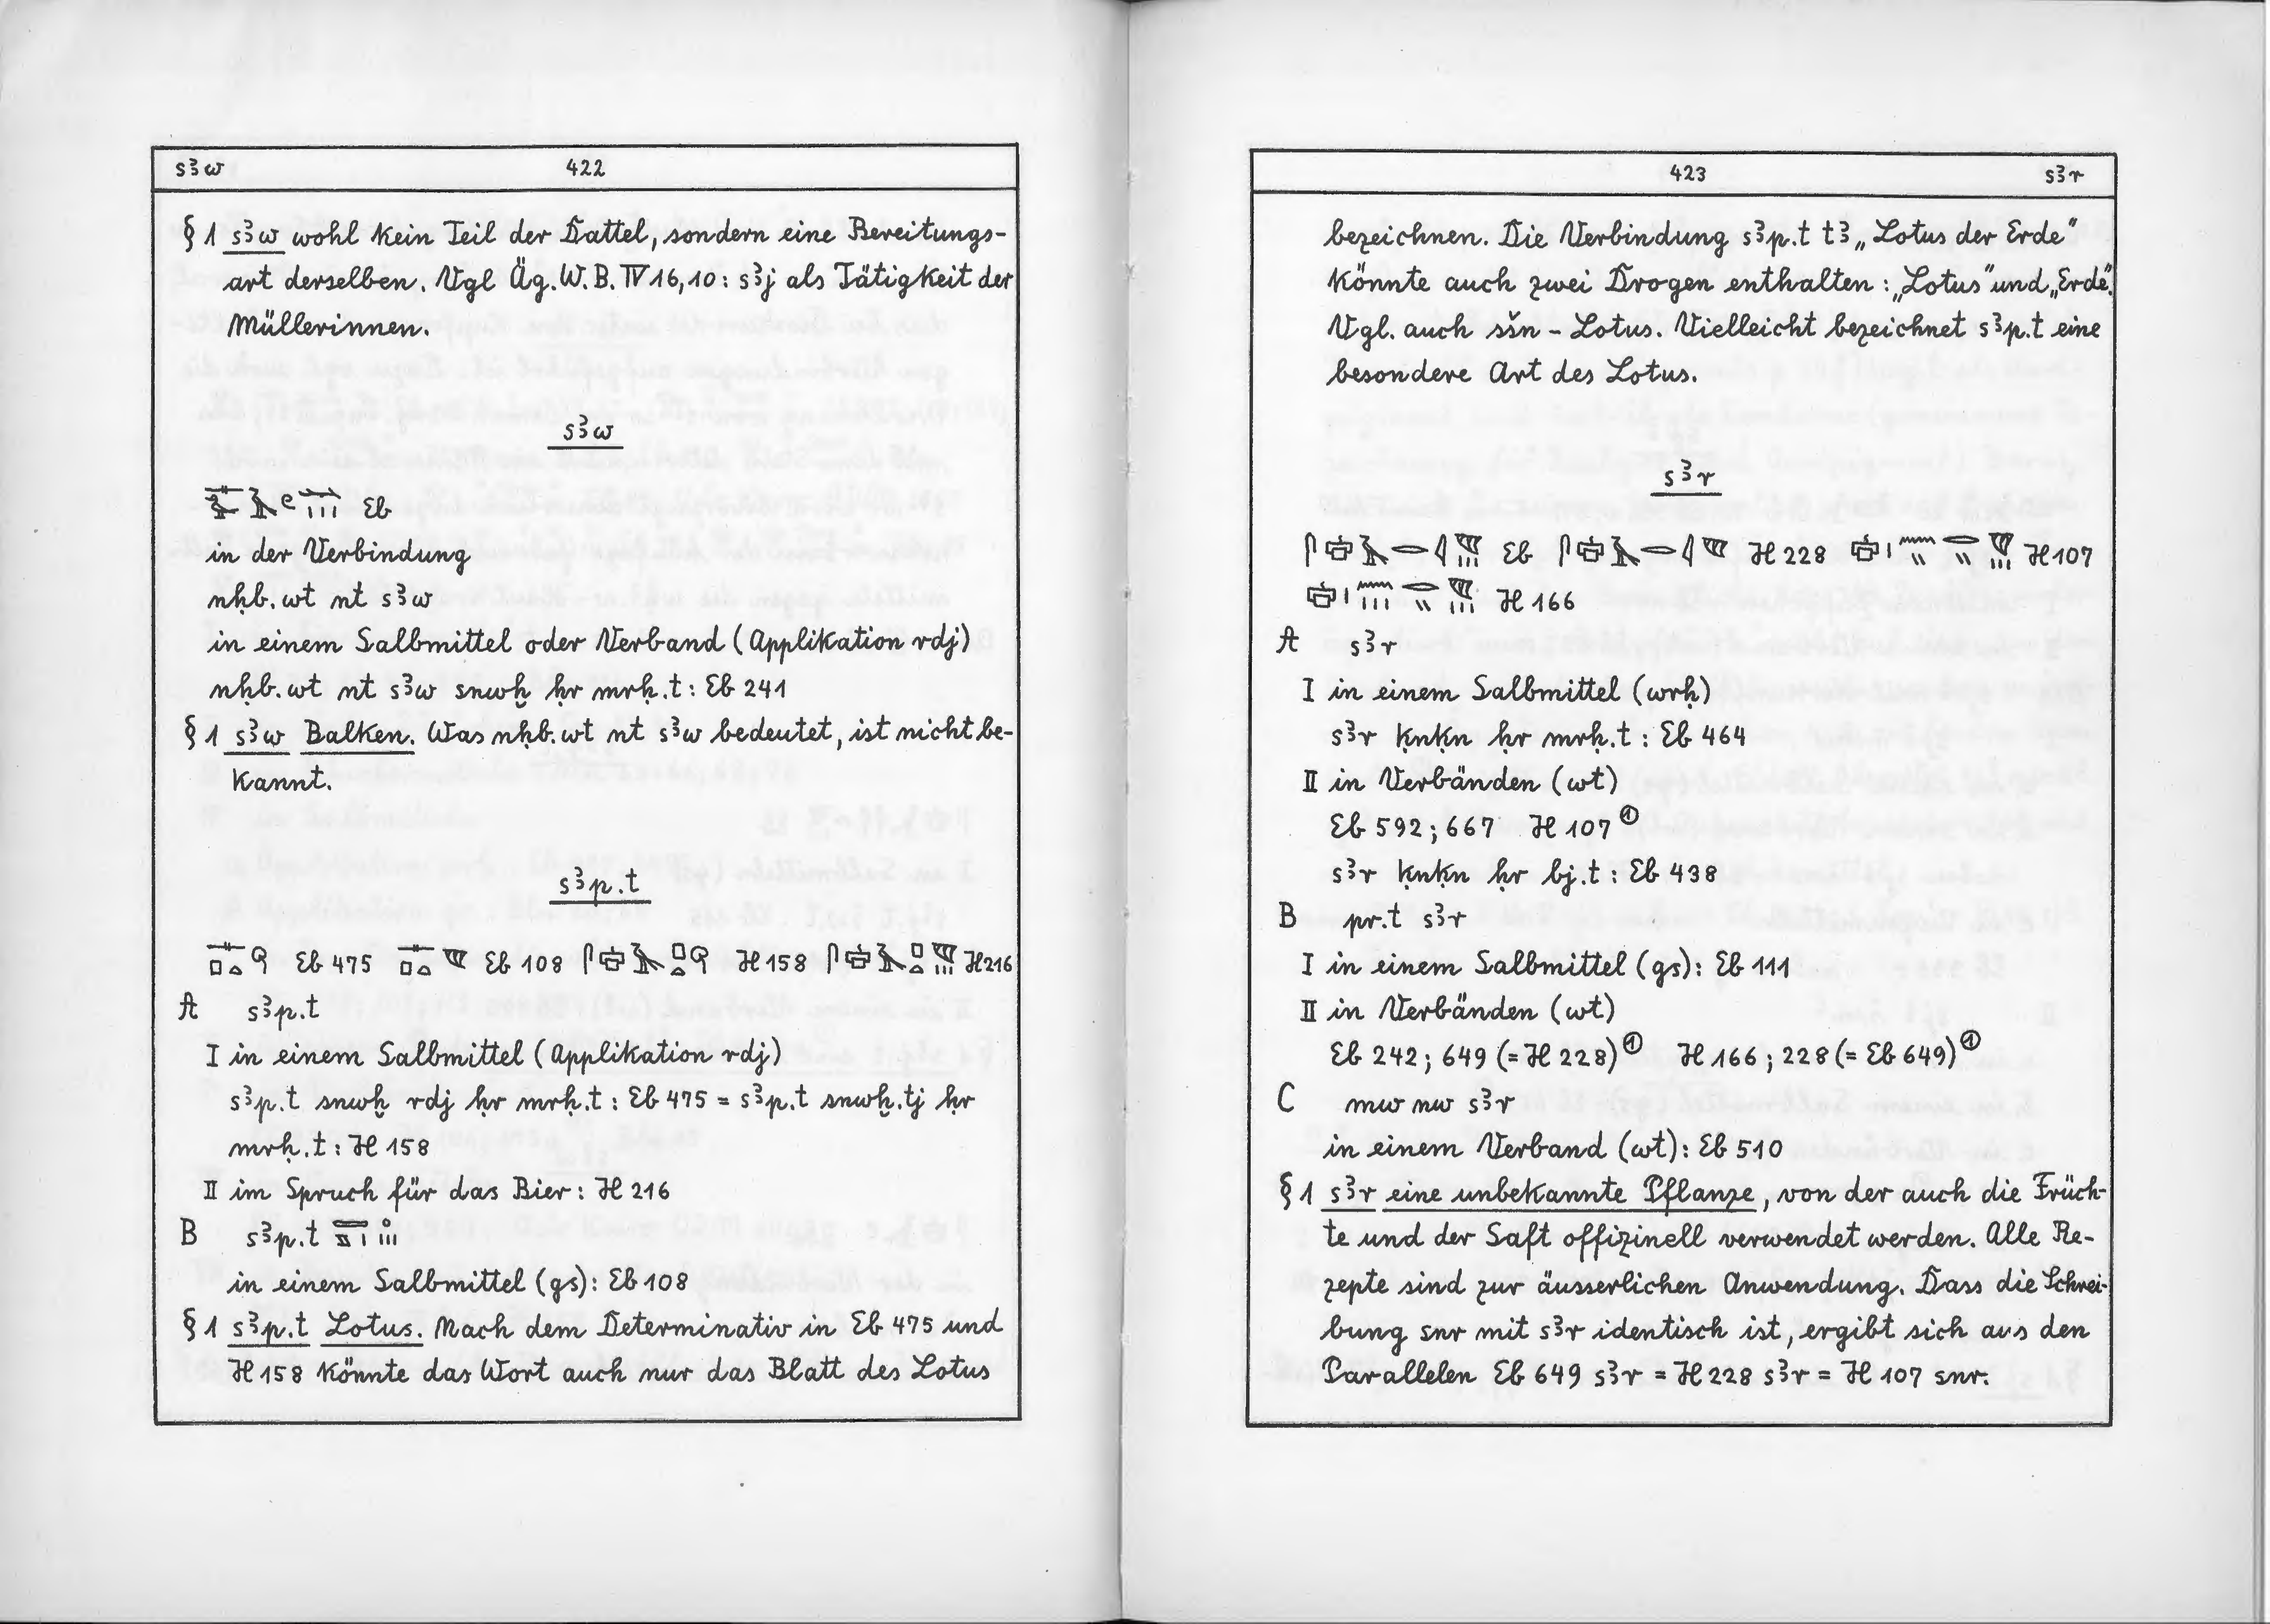 sꜣw 422
§ 1 sꜣw wohl kein Teil der Dattel, sondern eine Bereitungs-
art derselben. Vgl Äg. W. B. IV 16,10: sꜣj als Tätigkeit der
Müllerinnen.
sꜣw
Eb
in der Verbindung
nḥb.wt nt sꜣw
in einem Salbmittel oder Verband (Applikation rdj)
nḥb.wt nt sꜣw snwḫ ḥr mrḥ.t: Eb 241
§ 1 sꜣw Balken. Was nḥb.wt nt sꜣw bedeutet, ist nicht be-
kannt.
sꜣp.t
Eb 475 Eb 108 H 158 H 216
A sꜣp.t
I in einem Salbmittel (Applikation rdj)
sꜣp.t snwḫ rdj ḥr mrḥ.t: Eb 475 = sꜣp.t snwḫ.tj ḥr
mrḥ.t: H 158
II im Spruch für das Bier: H 216
B sꜣp.t
in einem Salbmittel (gs): Eb 108
§ 1 sꜣp.t Lotus. Nach dem Determinativ in Eb 475 und
H 158 könnte das Wort auch nur das Blatt des Lotus
423 sꜣr
bezeichnen. Die Verbindung sꜣp.t tꜣ „Lotus der Erde“
könnte auch zwei Drogen enthalten: „Lotus“ und „Erde“.
Vgl. auch sšn - Lotus. Vielleicht bezeichnet sꜣp.t eine
besondere Art des Lotus.
sꜣr
Eb H 228 H 107
H 166
A sꜣr
I in einem Salbmittel (wrḥ)
sꜣr ḳnḳn ḥr mrḥ.t: Eb 464
II in Verbänden (wt)
Eb 592; 667 H 107 ①
sꜣr ḳnḳn ḥr bj.t: Eb 438
B pr.t sꜣr
I in einem Salbmittel (gs): Eb 111
II in Verbänden (wt)
Eb 242; 649 (= H 228) ① H 166; 228 (= Eb 649) ①
C mw nw sꜣr
in einem Verband (wt): Eb 510
§ 1 sꜣr eine unbekannte Pflanze, von der auch die Früch-
te und der Saft offizinell verwendet werden. Alle Re-
zepte sind zur äusserlichen Anwendung. Dass die Schrei-
bung snr mit sꜣr identisch ist, ergibt sich aus den
Parallelen Eb 649 sꜣr = H 228 sꜣr = H 107 snr.